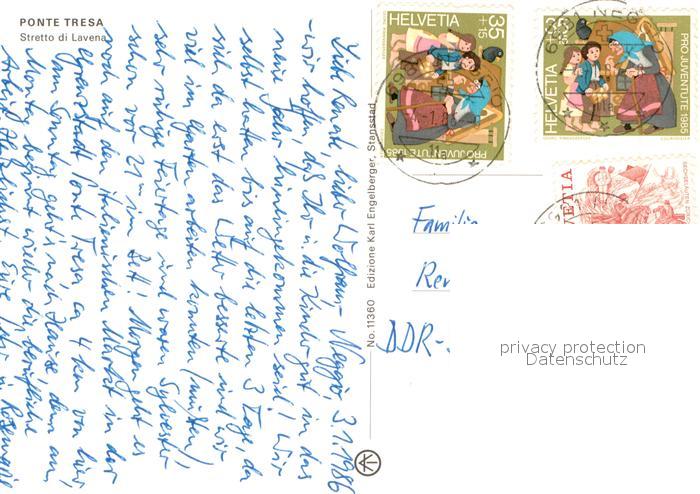 PONTE TRESA
Stretto di Lavena
Neggio, 3.1.1986
Liebe Renate, lieber Wolfram,
wir hoffen, daß Ihr u. die Kinder gut in das
neue Jahr hineingekommen seid! Wir
selbst hatten bis auf die letzten 3 Tage, da
und da erst das Wetter besserte und wir
viel im Garten arbeiten konnten (mußten)
sehr ruhige Feiertage und waren Sylvester
schon vor 21 im Bett! Morgen geht es
noch auf den italienischen Markt in der
Grenzstadt Ponte Tresa ca 4 km von hier,
am Sonntag geht's nach Hause, denn am
beginnt wieder die berufliche
No. 11360 Edizione Karl Engelberger, Stansstad
HELVETIA
35
+15
PRO JUVENTUTE 1985
HELVETIA
35
PRO JUVENTUTE 1985
HELVETIA
Familie
DDR-
privacy protection
Datenschutz